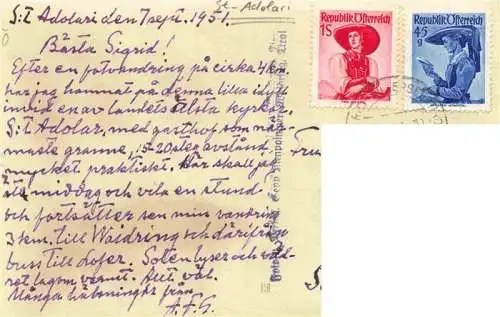 S:t Adolari den 7 sept. 1951.
St-Adolari
Bästa Sigrid!
Efter en fotvandring på cirka 4 km.
har jag hamnat på denna lilla idyll
invid en av landets älsta kyrkor,
S:t Adolar, med gasthof som när-
maste granne, 15-20 steg avstånd
mycket praktiskt. Här skall jag
äta middag och vila en stund
och fortsätter sen min vandring
3 km. till Waidring och därifrån
buss till Lofer. Solen lyser och väd-
ret lagom varmt. Allt väl.
Många hälsningar från
A.F.G.
Republik Österreich
1S
Republik Österreich
45
g
Tirol